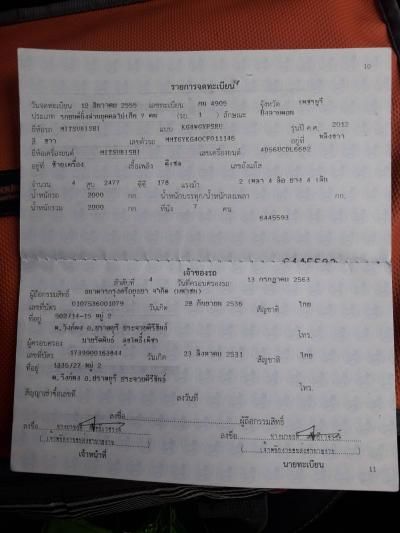 10
รายการจดทะเบียน
วันจดทะเบียน 12 ธันวาคม 2555 เลขทะเบียน กน 4905 จังหวัด เพชรบุรี
ประเภท รถยนต์นั่งส่วนบุคคลไม่เกิน 7 คน (รย. 1) ลักษณะ
ยี่ห้อรถ MITSUBISHI แบบ รุ่นปี ค.ศ. 2012
สี ขาว เลขตัวรถ อยู่ที่
ยี่ห้อเครื่องยนต์ MITSUBISHI เลขเครื่องยนต์
อยู่ที่ เชื้อเพลิง ดีเซล เลขถังแก๊ส
จำนวน 4 สูบ 2477 ซีซี 178 แรงม้า 2 เพลา 4 ล้อ ยาง 4 เส้น
น้ำหนักรถ 2000 กก. น้ำหนักบรรทุก/น้ำหนักลงเพลา กก.
น้ำหนักรวม 2000 กก. ที่นั่ง 7 คน
6445593
6445593
เจ้าของรถ
ลำดับที่ 4 วันที่ครอบครองรถ 13 กรกฎาคม 2563
ผู้ถือกรรมสิทธิ์ ธนาคารกรุงศรีอยุธยา จำกัด (มหาชน)
เลขที่บัตร 0107536001079 วันเกิด 28 กันยายน 2536 สัญชาติ ไทย
ที่อยู่ 902/14-15 หมู่ 2
ต.วังก์พง อ.ปราณบุรี ประจวบคีรีขันธ์ โทร.
ผู้ครอบครอง
เลขที่บัตร 1739900163844 วันเกิด 23 สิงหาคม 2531 สัญชาติ ไทย
ที่อยู่ 1335/27 หมู่ 2
ต.วังก์พง อ.ปราณบุรี ประจวบคีรีขันธ์ โทร.
สัญญาเช่าซื้อเลขที่ ลงวันที่
ลงชื่อ ผู้ถือกรรมสิทธิ์
ลงชื่อ ลงชื่อ
เจ้าหน้าที่ นายทะเบียน
11